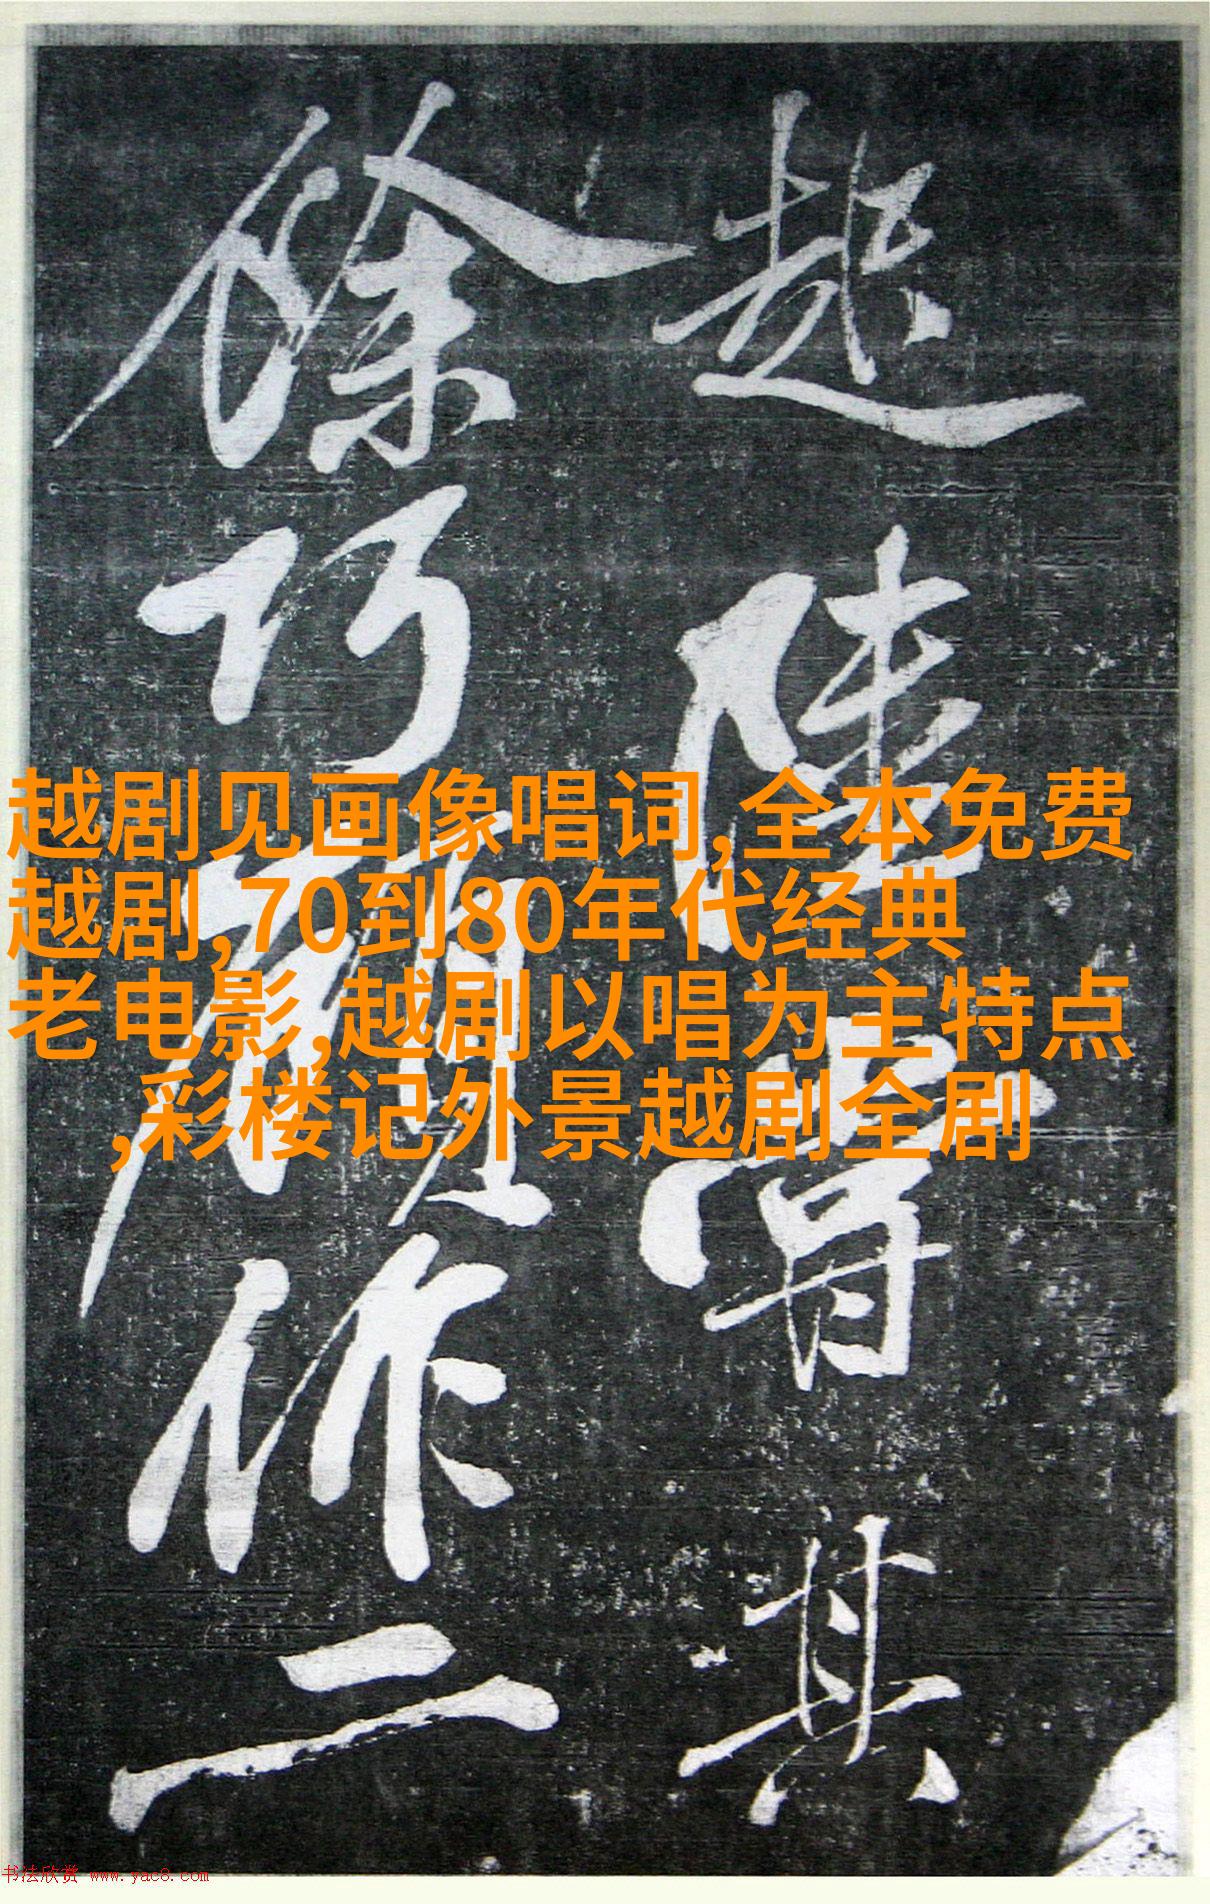 越剧见画像唱词,全本免费
越剧,70到80年代经典
老电影,越剧以唱为主特点
,彩楼记外景越剧全剧
陸其
巧作二
书法欣赏 www.yac8.com